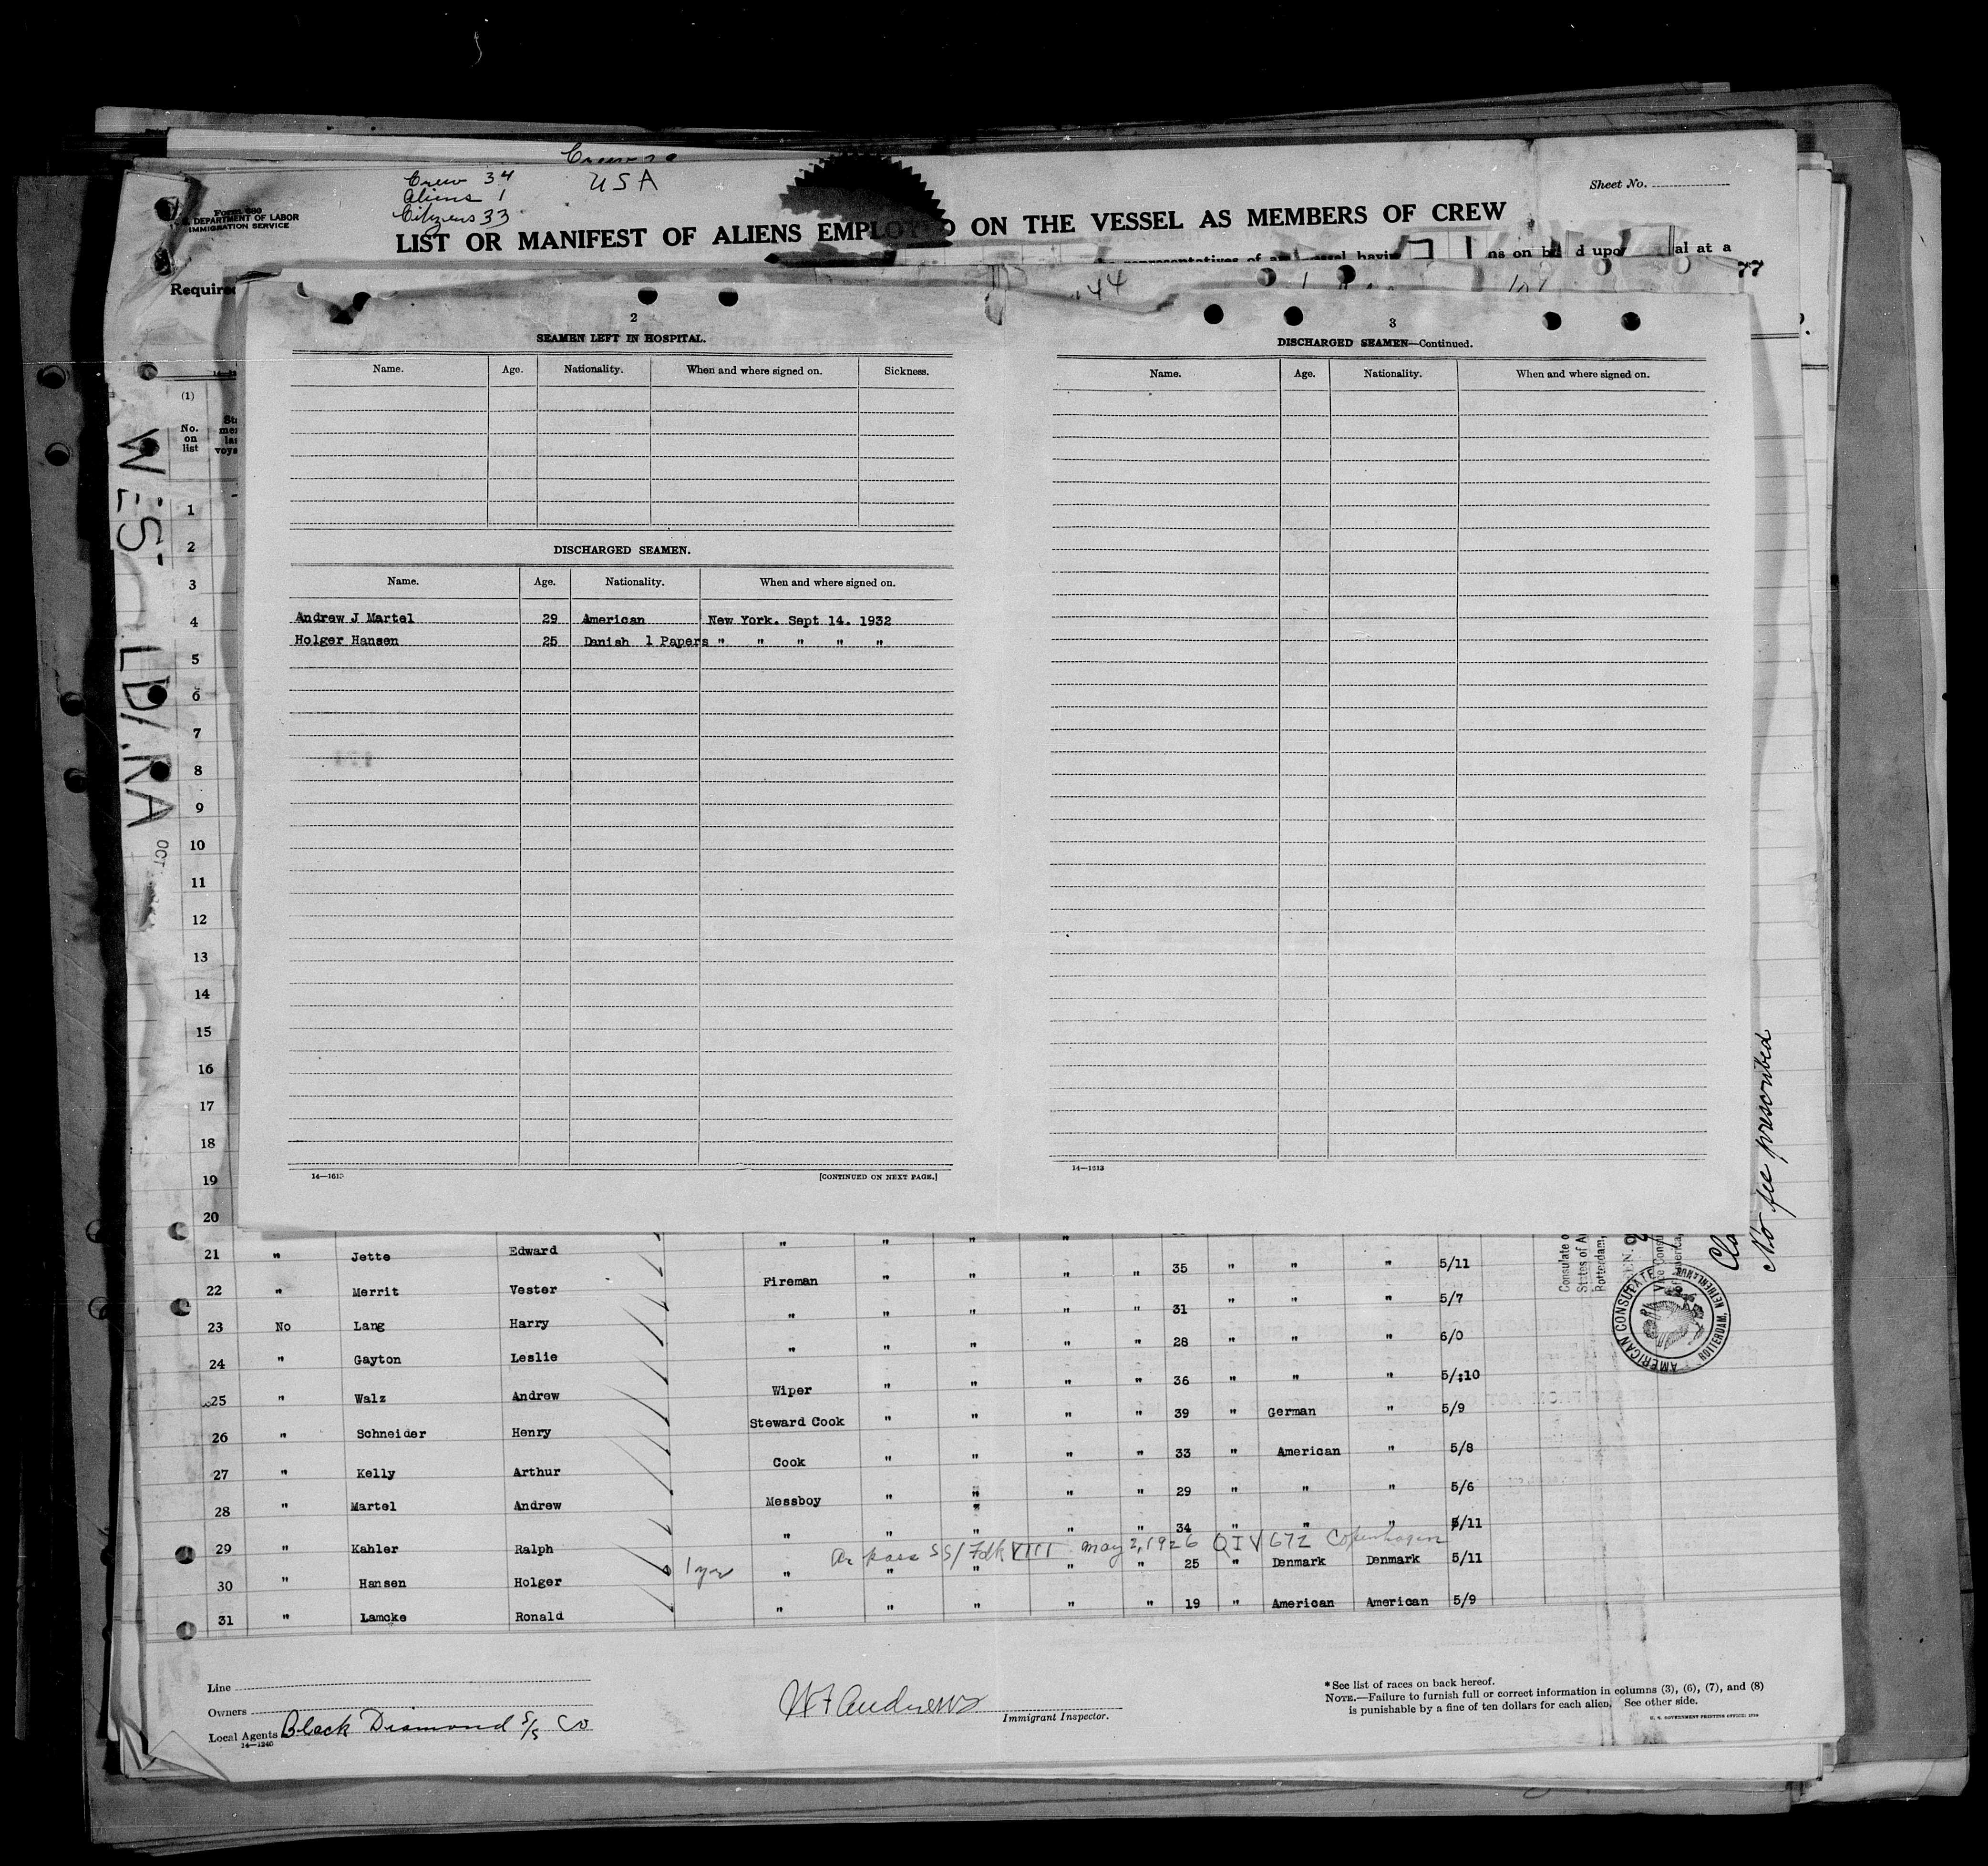 Crew 34
USA
Aliens 1
Citizens 33
Sheet No.
Form 680
U. S. DEPARTMENT OF LABOR
IMMIGRATION SERVICE
LIST OR MANIFEST OF ALIENS EMPLOYED ON THE VESSEL AS MEMBERS OF CREW
al at a
77
44
2
SEAMEN LEFT IN HOSPITAL.
Name. Age. Nationality. When and where signed on. Sickness.
DISCHARGED SEAMEN.
Name. Age. Nationality. When and where signed on.
Andrew J Martel 29 American New York. Sept 14. 1932
Holger Hansen 25 Danish 1 Papers " " " " "
14—1613
[CONTINUED ON NEXT PAGE.]
3
DISCHARGED SEAMEN—Continued.
Name. Age. Nationality. When and where signed on.
14—1613
(1)
No. on list
1
2
3
4
5
6
7
8
9
10
11
12
13
14
15
16
17
18
19
20
21 " Jette Edward " " " "
22 " Merrit Vester Fireman " " " " 35 " " " 5/11
23 No Lang Harry " " " " " 31 " " " 5/7
24 " Gayton Leslie " " " " " 28 " " " 6/0
25 " Walz Andrew Wiper " " " " 36 " " " 5/10
26 " Schneider Henry Steward Cook " " " " 39 " German " 5/9
27 " Kelly Arthur Cook " " " " 33 " American " 5/8
28 " Martel Andrew Messboy " " " " 29 " " " 5/6
29 " Kahler Ralph " " " " " 34 " " " 5/11
May 2, 1926 QIV 672 Copenhagen
30 " Hansen Holger 1 yr " " " " " 25 " Denmark Denmark 5/11
31 " Lamcke Ronald " " " " " 19 " American American 5/9
OCT
No fee prescribed
AMERICAN CONSULATE
ROTTERDAM, NETHERLANDS
Line
Owners
Local Agents Black Diamond S/S Co
14—1240
Immigrant Inspector.
* See list of races on back hereof.
NOTE.—Failure to furnish full or correct information in columns (3), (6), (7), and (8)
is punishable by a fine of ten dollars for each alien. See other side.
U. S. GOVERNMENT PRINTING OFFICE